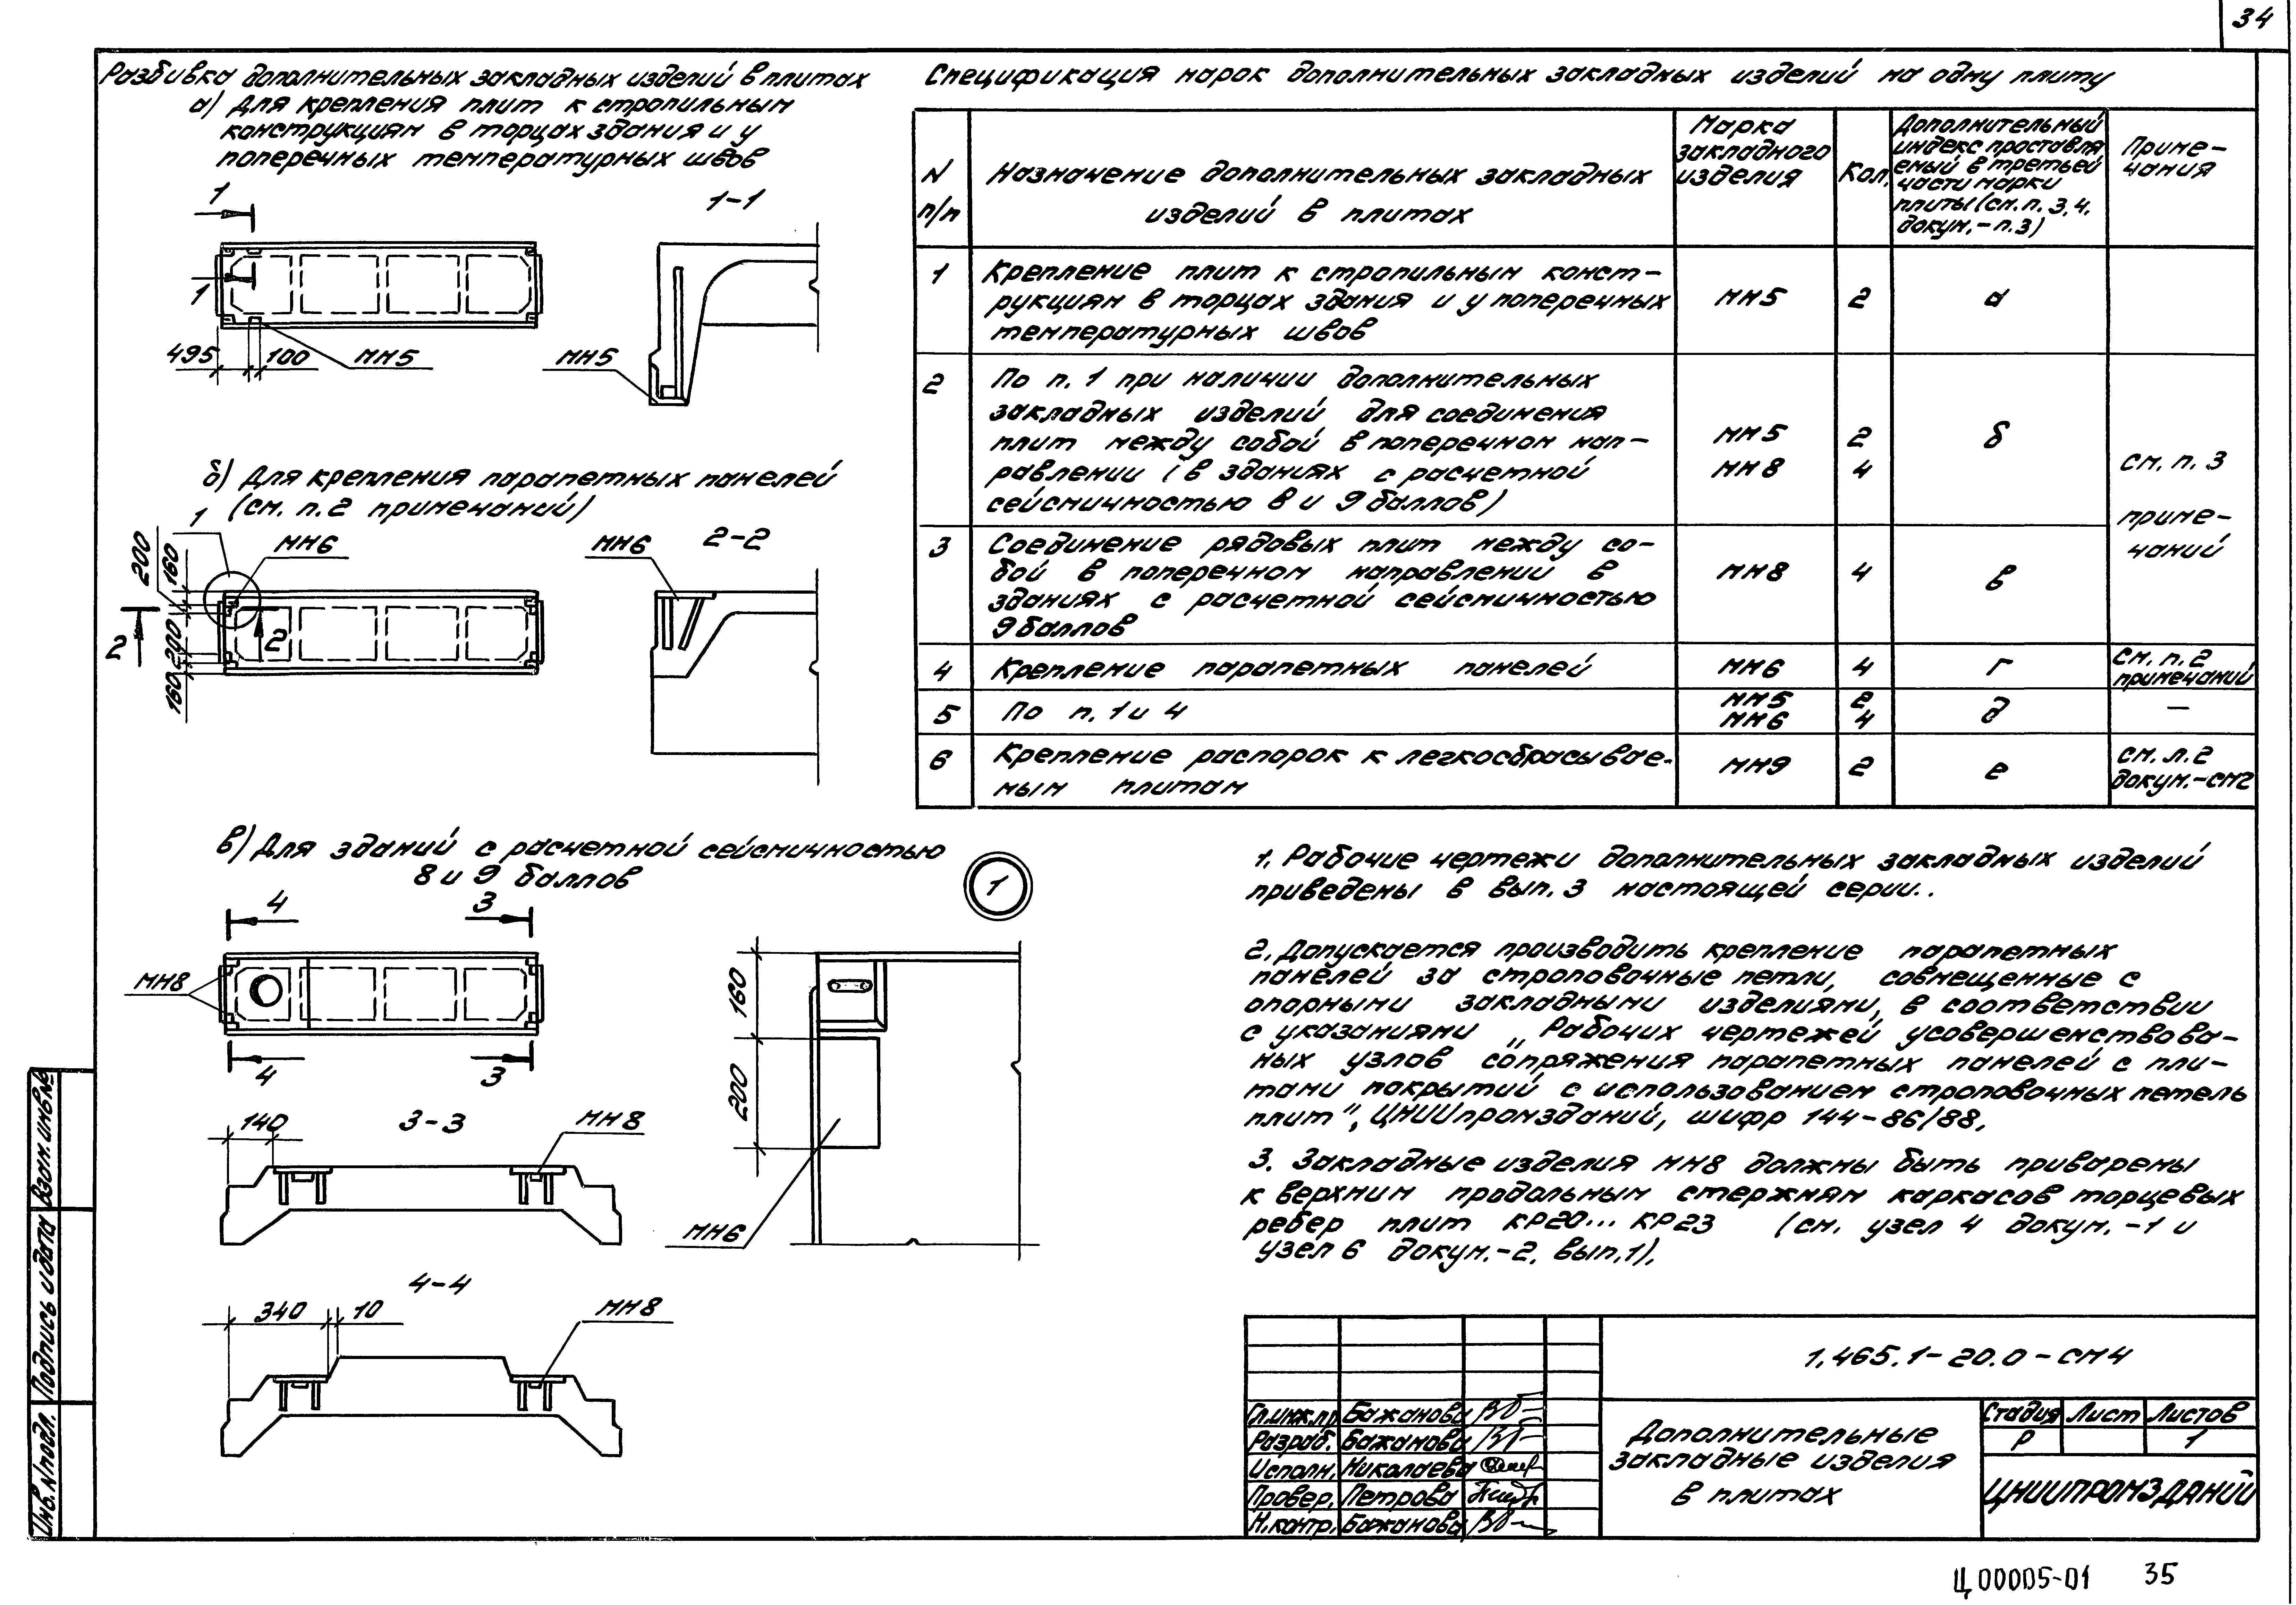 34
Разбивка дополнительных закладных изделий в плитах
а) Для крепления плит к стропильным
конструкциям в торцах здания и у
поперечных температурных швов
1
1
495
100
МН5
1-1
МН5
б) Для крепления парапетных панелей
(см. п.2 примечаний)
1
МН6
200
160
2
2
200
160
2-2
МН6
в) Для зданий с расчетной сейсмичностью
8 и 9 баллов
4
3
МН8
4
3
3-3
140
МН8
4-4
340
10
МН8
1
160
200
МН6
Спецификация марок дополнительных закладных изделий на одну плиту
N
п/п
Назначение дополнительных закладных
изделий в плитах
Марка
закладного
изделия
Кол.
Дополнительный
индекс проставля
емый в третьей
части марки
плиты (см. п. 3,4,
докум.-п.3)
Приме-
чания
1
Крепление плит к стропильным конст-
рукциям в торцах здания и у поперечных
температурных швов
МН5
2
а
2
По п. 1 при наличии дополнительных
закладных изделий для соединения
плит между собой в поперечном нап-
равлении (в зданиях с расчетной
сейсмичностью 8 и 9 баллов)
МН5
МН8
2
4
б
см. п. 3
приме-
чаний
3
Соединение рядовых плит между со-
бой в поперечном направлении в
зданиях с расчетной сейсмичностью
9 баллов
МН8
4
в
4
Крепление парапетных панелей
МН6
4
г
см. п. 2
примечаний
5
По п. 1 и 4
МН5
МН6
2
4
д
—
6
Крепление распорок к легкосбрасывае-
мым плитам
МН9
2
е
см. л. 2
докум.-СМ2
1. Рабочие чертежи дополнительных закладных изделий
приведены в вып. 3 настоящей серии..
2. Допускается производить крепление парапетных
панелей за строповочные петли, совмещенные с
опорными закладными изделиями, в соответствии
с указаниями „Рабочих чертежей усовершенствова-
ных узлов сопряжения парапетных панелей с пли-
тами покрытий с использованием строповочных петель
плит", ЦНИИпромзданий, шифр 144-86/88.
3. Закладные изделия МН8 должны быть приварены
к верхним продольным стержням каркасов торцевых
ребер плит КР20... КР23 (см. узел 4 докум. -1 и
узел 6 докум.-2. вып.1).
1.465.1-20.0-СМ4
Гл.инж.пр
Бажанова
Разраб.
Бажанова
Исполн.
Николаева
Провер.
Петрова
Н.контр.
Бажанова
Дополнительные
закладные изделия
в плитах
Стадия
Лист
Листов
Р
1
ЦНИИПРОМЗДАНИЙ
Взам. инв.№
Подпись и дата
Инв. N подл.
Ц00005-01
35